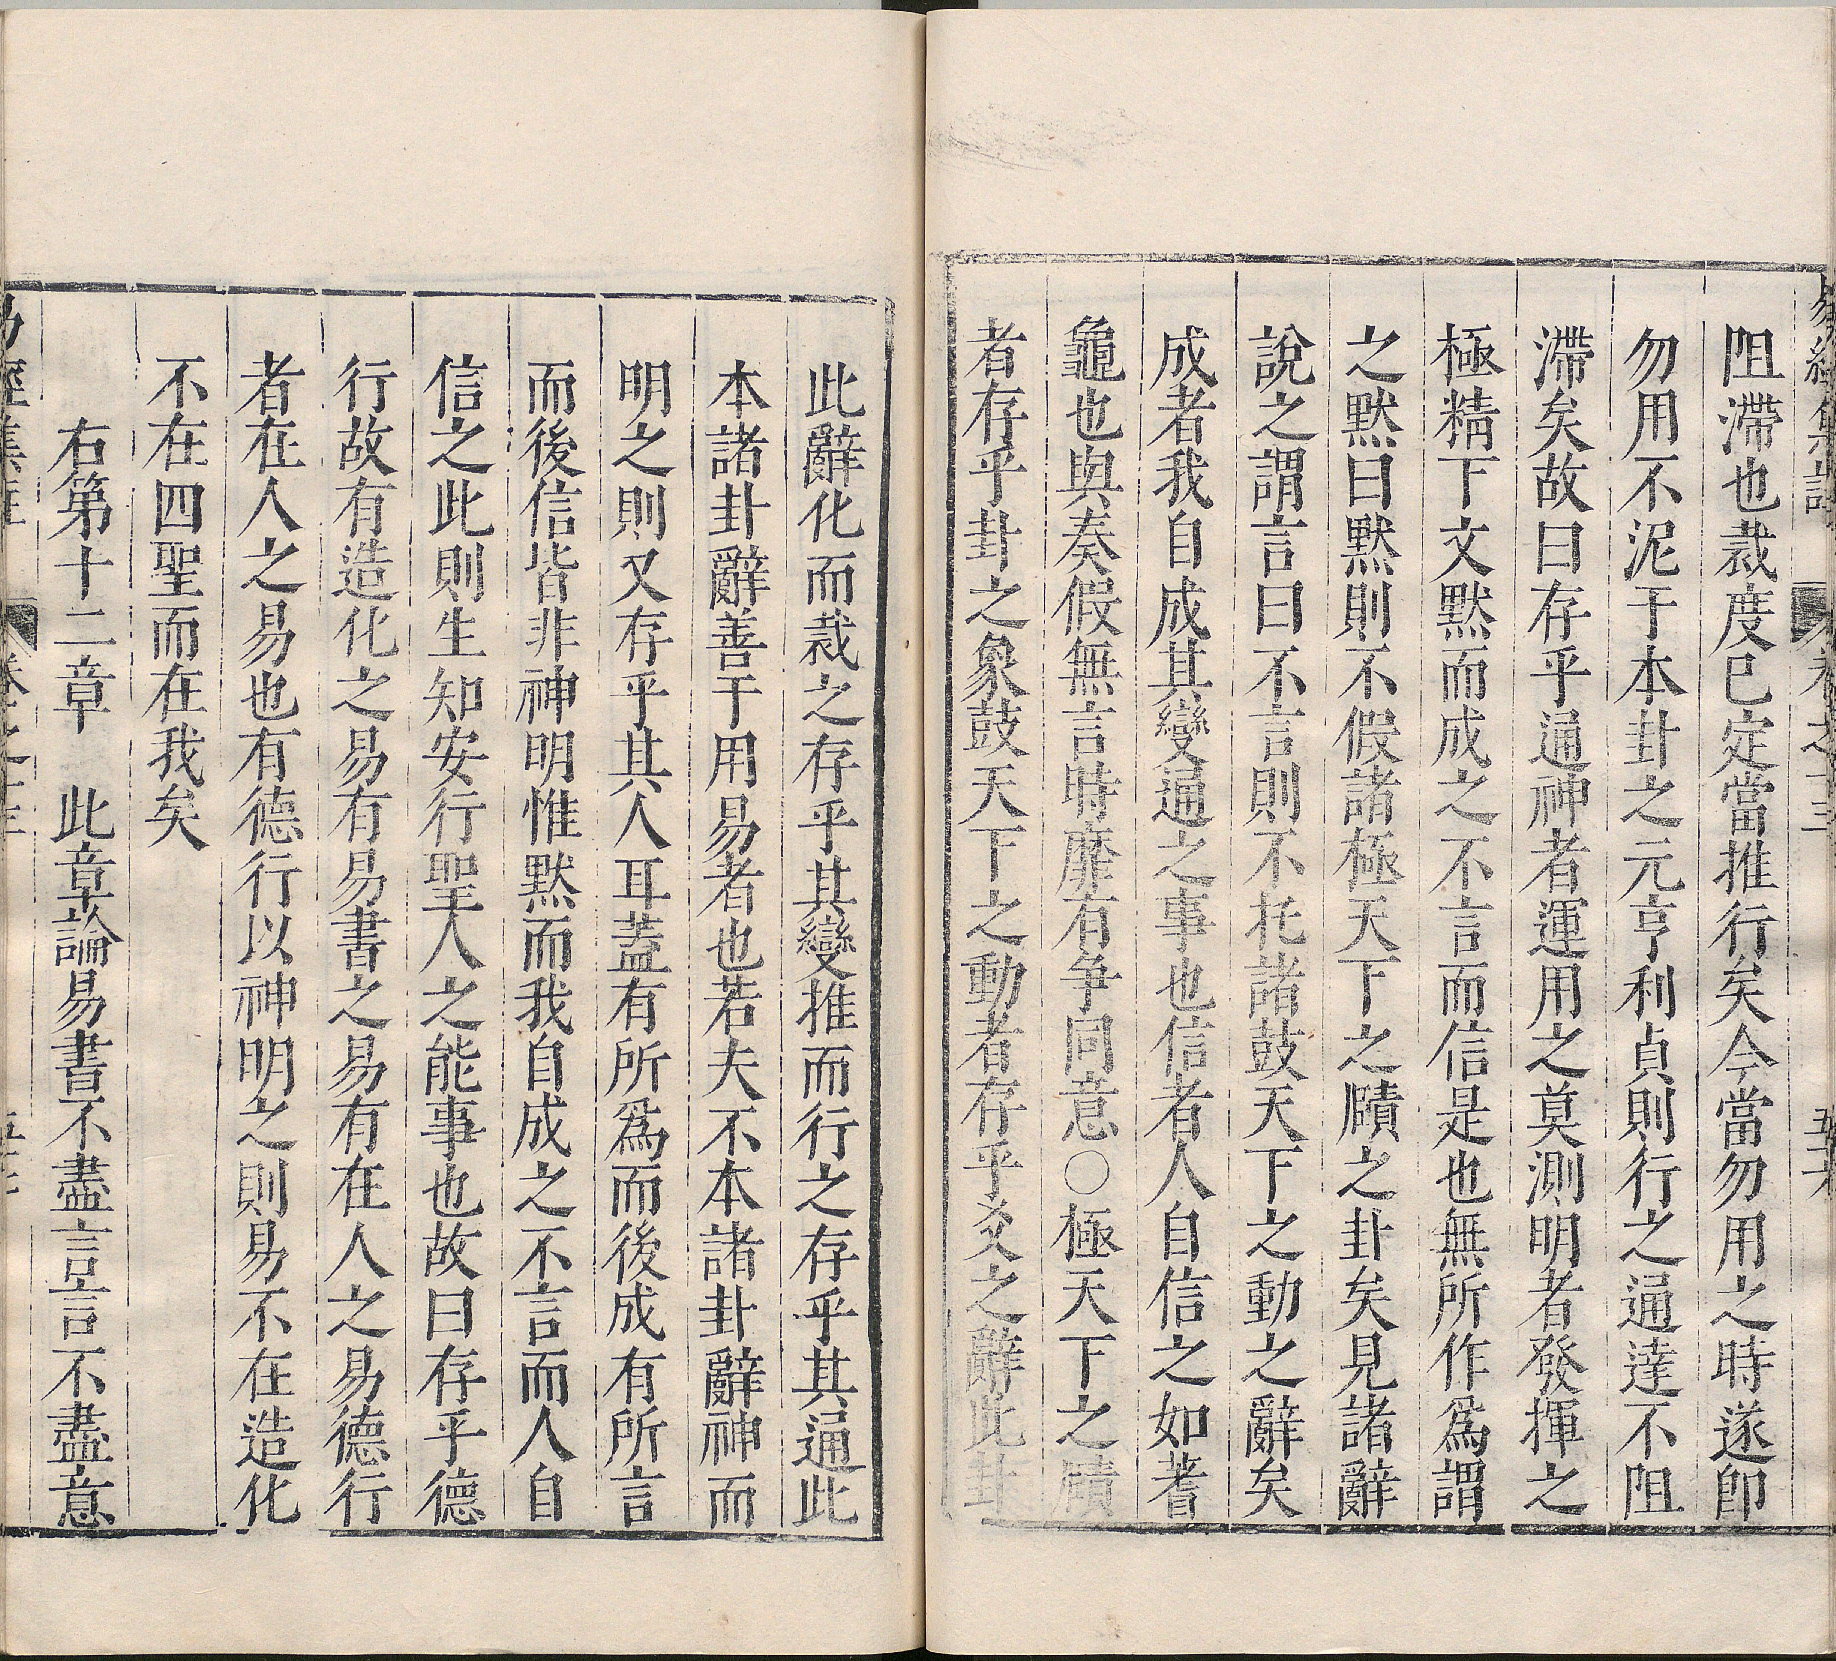 易經集註
卷之十三
五十六
阻滯也裁度已定當推行矣今當勿用之時遂卽
勿用不泥于本卦之元亨利貞則行之通達不阻
滯矣故曰存乎通神者運用之莫測明者發揮之
極精下文默而成之不言而信是也無所作爲謂
之默曰默則不假諸極天下之賾之卦矣見諸辭
說之謂言曰不言則不托諸鼓天下之動之辭矣
成者我自成其變通之事也信者人自信之如蓍
龜也與奏假無言時靡有爭同意○極天下之賾
者存乎卦之象鼓天下之動者存乎爻之辭此卦
此辭化而裁之存乎其變推而行之存乎其通此
本諸卦辭善于用易者也若夫不本諸卦辭神而
明之則又存乎其人耳蓋有所爲而後成有所言
而後信皆非神明惟默而我自成之不言而人自
信之此則生知安行聖人之能事也故曰存乎德
行故有造化之易有易書之易有在人之易德行
者在人之易也有德行以神明之則易不在造化
不在四聖而在我矣
右第十二章　此章論易書不盡言言不盡意